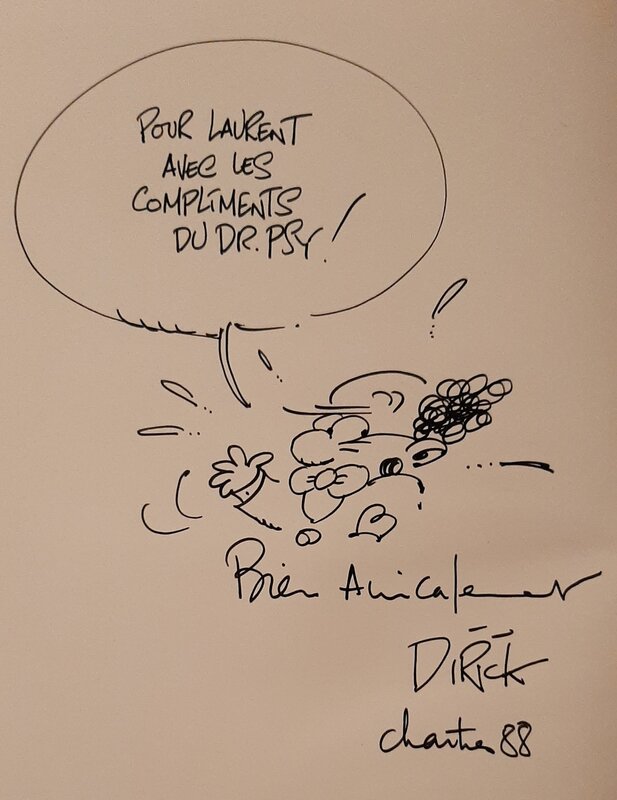 POUR LAURENT
AVEC LES
COMPLIMENTS
DU DR. PSY!
Bien Amicalement
DIRICK
chartres 88